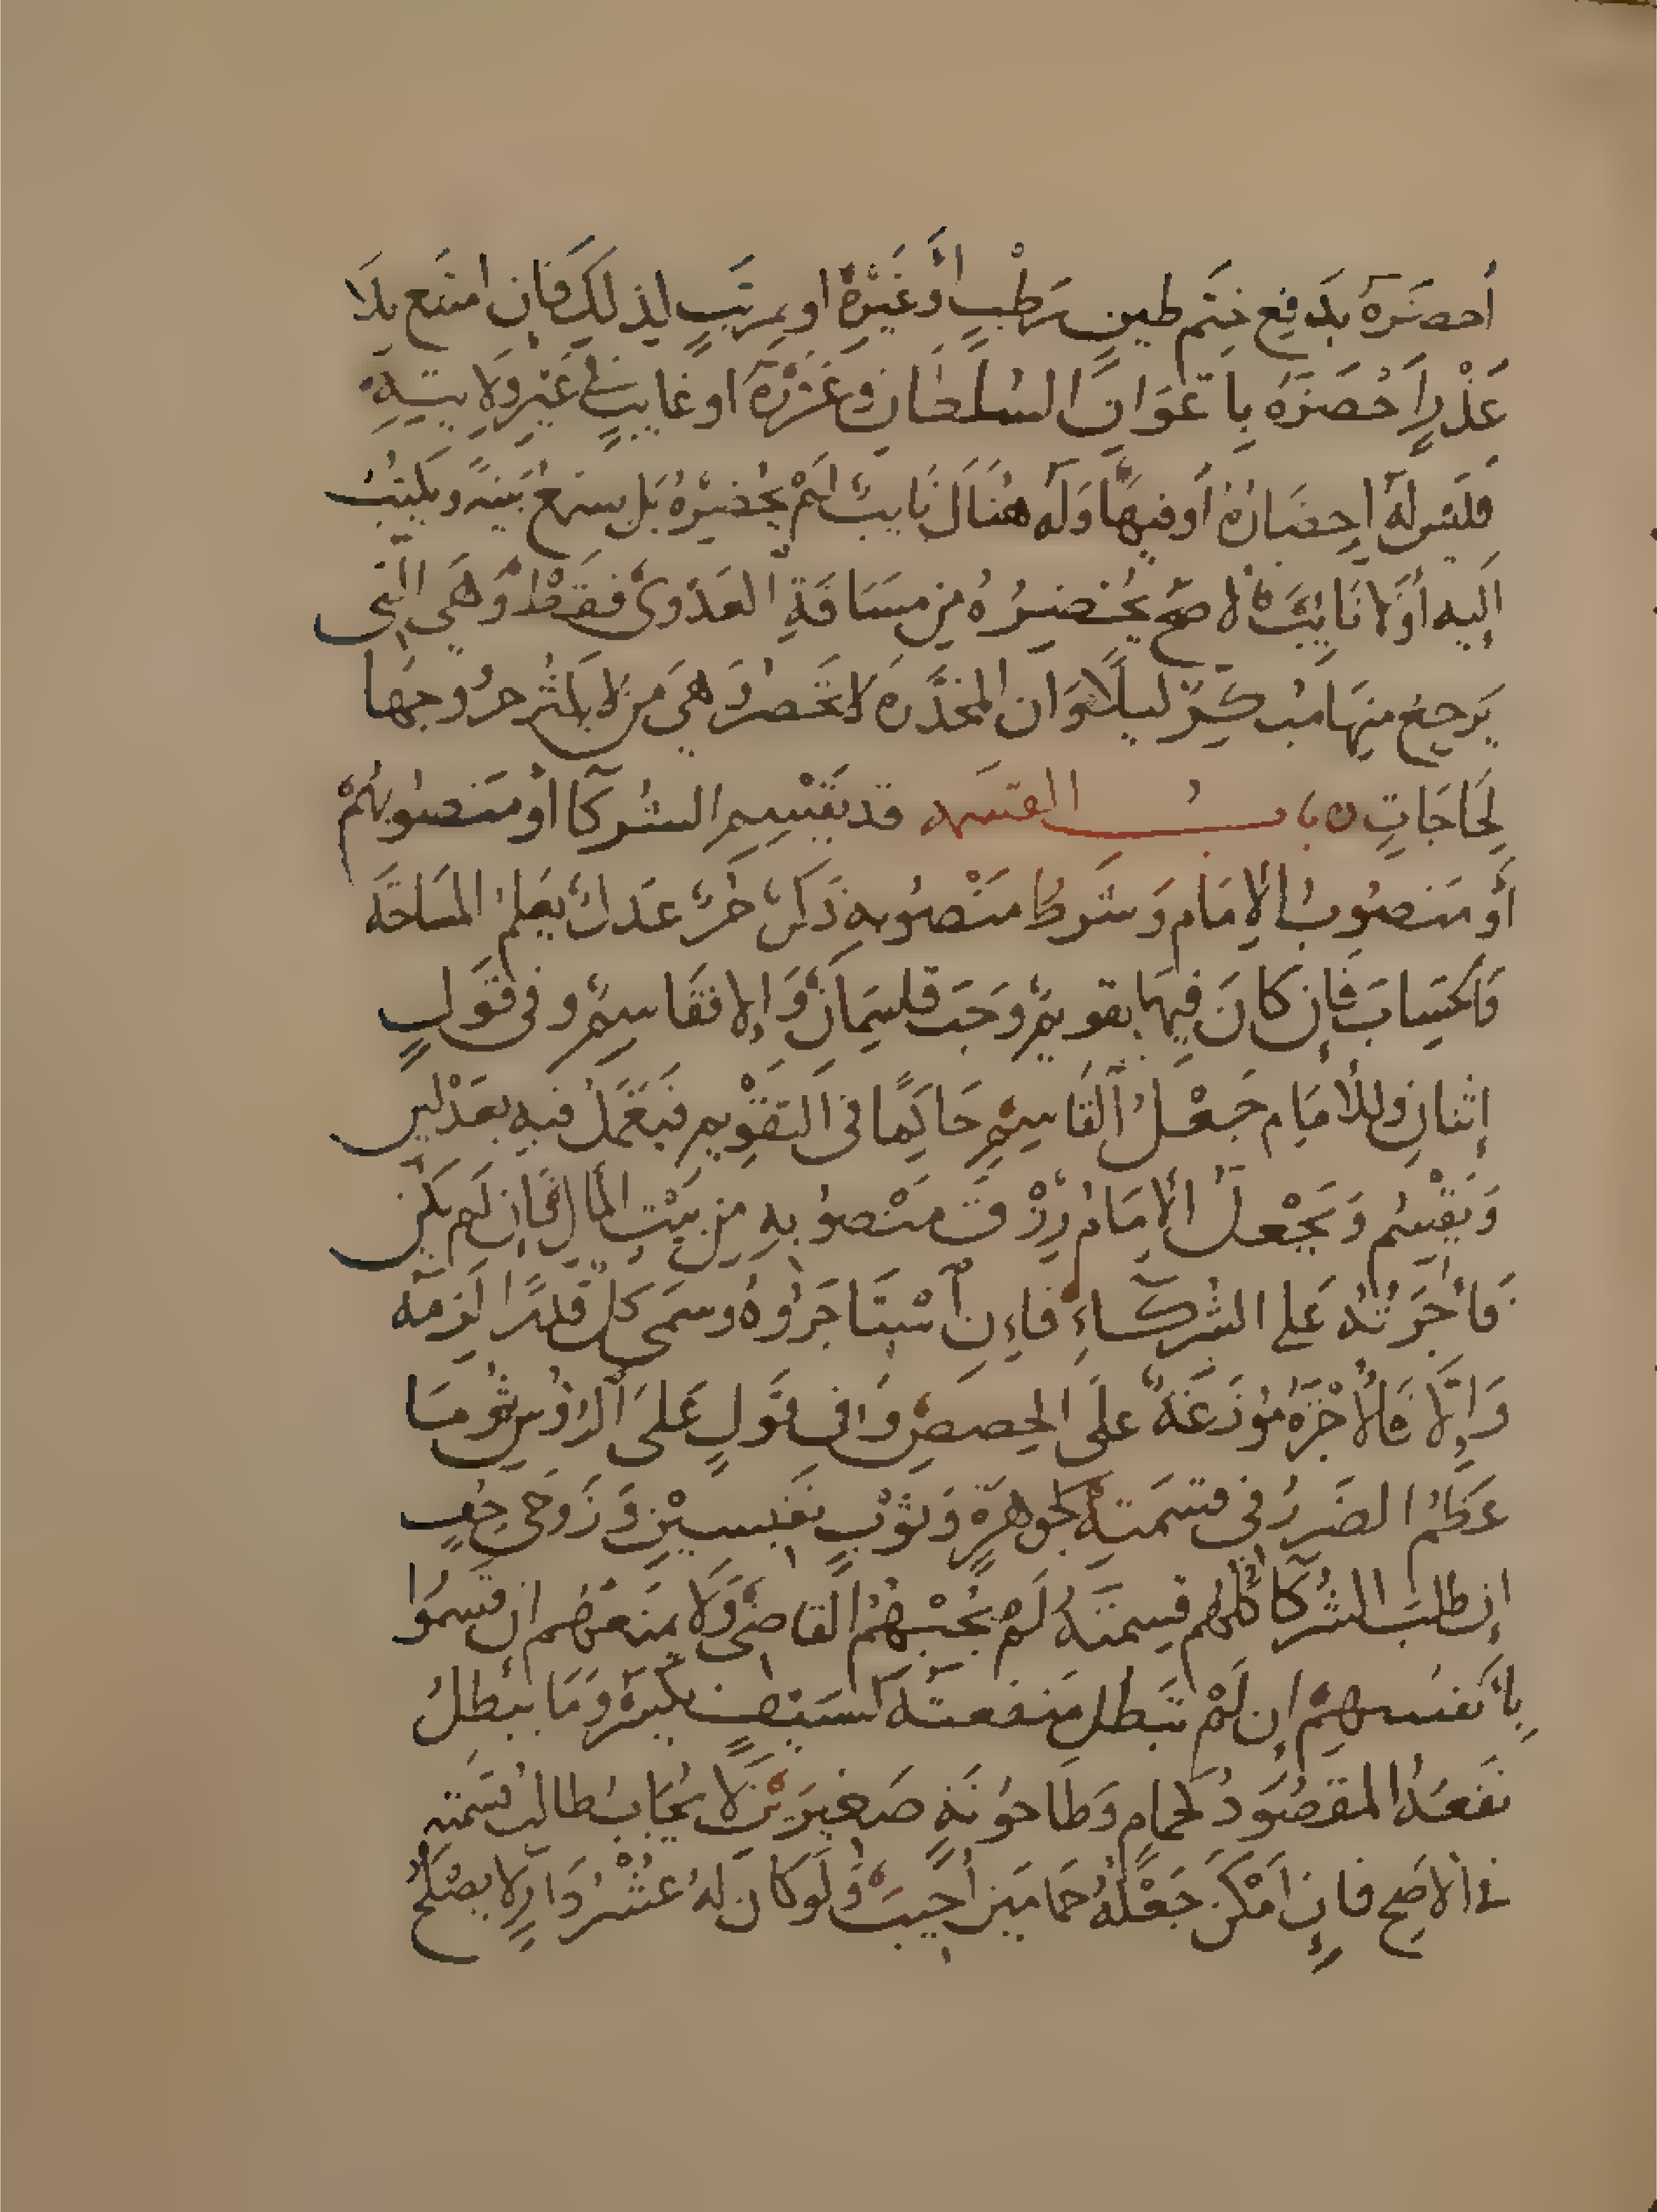 أحضره بدفع ختم طين رطب أو غيره او بمرتب لذلك فإن امتنع بلا
عذر أحضره بأعوان السلطان وعزره او غايب في غير ولايته
فليس له إحضاره أو فيها وله هناك نايب لم يحضره بل يسمع بينة ويكتب
إليه أو لا نايب فالاصح يحضره من مسافة العدوى فقط وهي التي
يرجع منها مبكر ليلا وأن المخدرة لا تحضر وهي من لا يكثر خروجها
لحاجات ٥ باب القسمه قد يقسم الشركا أو منصوبهم
أو منصوب الإمام وشرط منصوبه ذكر حر عدل يعلم المساحة
والحساب فإن كان فيها تقويم وجب قاسمان وإلا فقاسم وفي قول
إثنان وللامام جعل القاسم حاكما في التقويم فيعمل فيه بعدلين
ويقسم ويجعل الإمام رزق منصوبه من بيت المال فإن لم يكن
فأجرته على الشركاء فإن استأجروه وسمى كل قدرا لزمه
وإلا فالأجرة موزعة على الحصص وفي قول على الرؤس ثم ما
عظم الضرر في قسمته كجوهرة وثوب نفيسين وزوجي خف
إن طلب الشركا كلهم قسمته لم يجبهم القاضي ولا يمنعهم إن قسموا
بأنفسهم إن لم تبطل منفعته كسيف يكسر وما يبطل
نفعه المقصود كحمام وطاحونة صغيرين لا يجاب طالب قسمته
في الاصح فإن أمكن جعله حمامين أجيب ولو كان له عشر دار لا يصلح